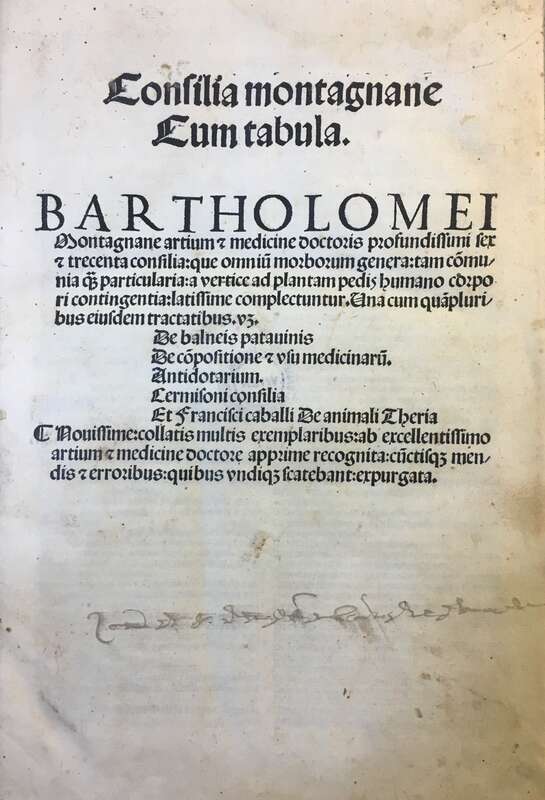 Consilia montagnane
Cum tabula.
BARTHOLOMEI
Montagnane artium ⁊ medicine doctoris profundissimi sex
⁊ trecenta consilia: que omniũ morborum genera: tam cõmu⸗
nia qꝫ particularia: a vertice ad plantam pedis humano corpo
ri contingentia: latissime complectuntur. Una cum quãpluri⸗
bus eiusdem tractatibus. vꝫ.
De balneis patavinis
De cõpositione ⁊ vsu medicinarũ.
Antidotarium.
Cermisoni consilia
Et Francisci caballi De animali Theria
¶ Novissime: collatis multis exemplaribus: ab excellentissimo
artium ⁊ medicine doctore apprime recognita: cũctisqꝫ men⸗
dis ⁊ erroribus: quibus vndiqꝫ scatebant: expurgata.